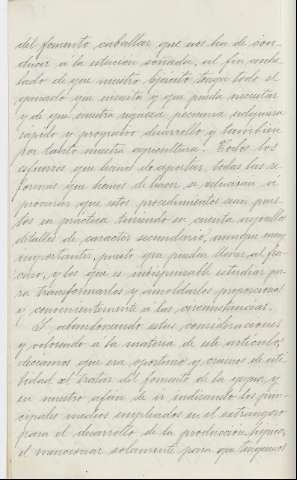 del fomento caballar que nos ha de con-
ducir a la situacion soñada, al fin anhe-
lado de que nuestro Ejército tenga todo el
ganado que necesita y que pueda necesitar
y de que nuestra riqueza pecuaria adquiera
rápido y progresivo desarrollo y tambien
por tanto nuestra agricultura. Todos los
esfuerzos que hemos de aportar, todas las re-
formas que hemos de hacer, se
procurar que estos procedimientos sean pues-
tos en práctica teniendo en cuenta aquellos
detalles de caracter secundario, aunque muy
importantes, puesto que pueden llevar al fra-
caso, y los que es indispensable estudiar pa-
ra transformarlos y amoldarlos
y convenientemente a las circunstancias.
Y abandonando estas consideraciones
y volviendo a la materia de este articulo,
deciamos que era oportuno y creemos de uti-
lidad al tratar del fomento de la yegua, y
en nuestro afan de ir indicando los prin-
cipales medios empleados en el extrangero
para el desarrollo de la produccion equina,
el mencionar solamente para que tengamos